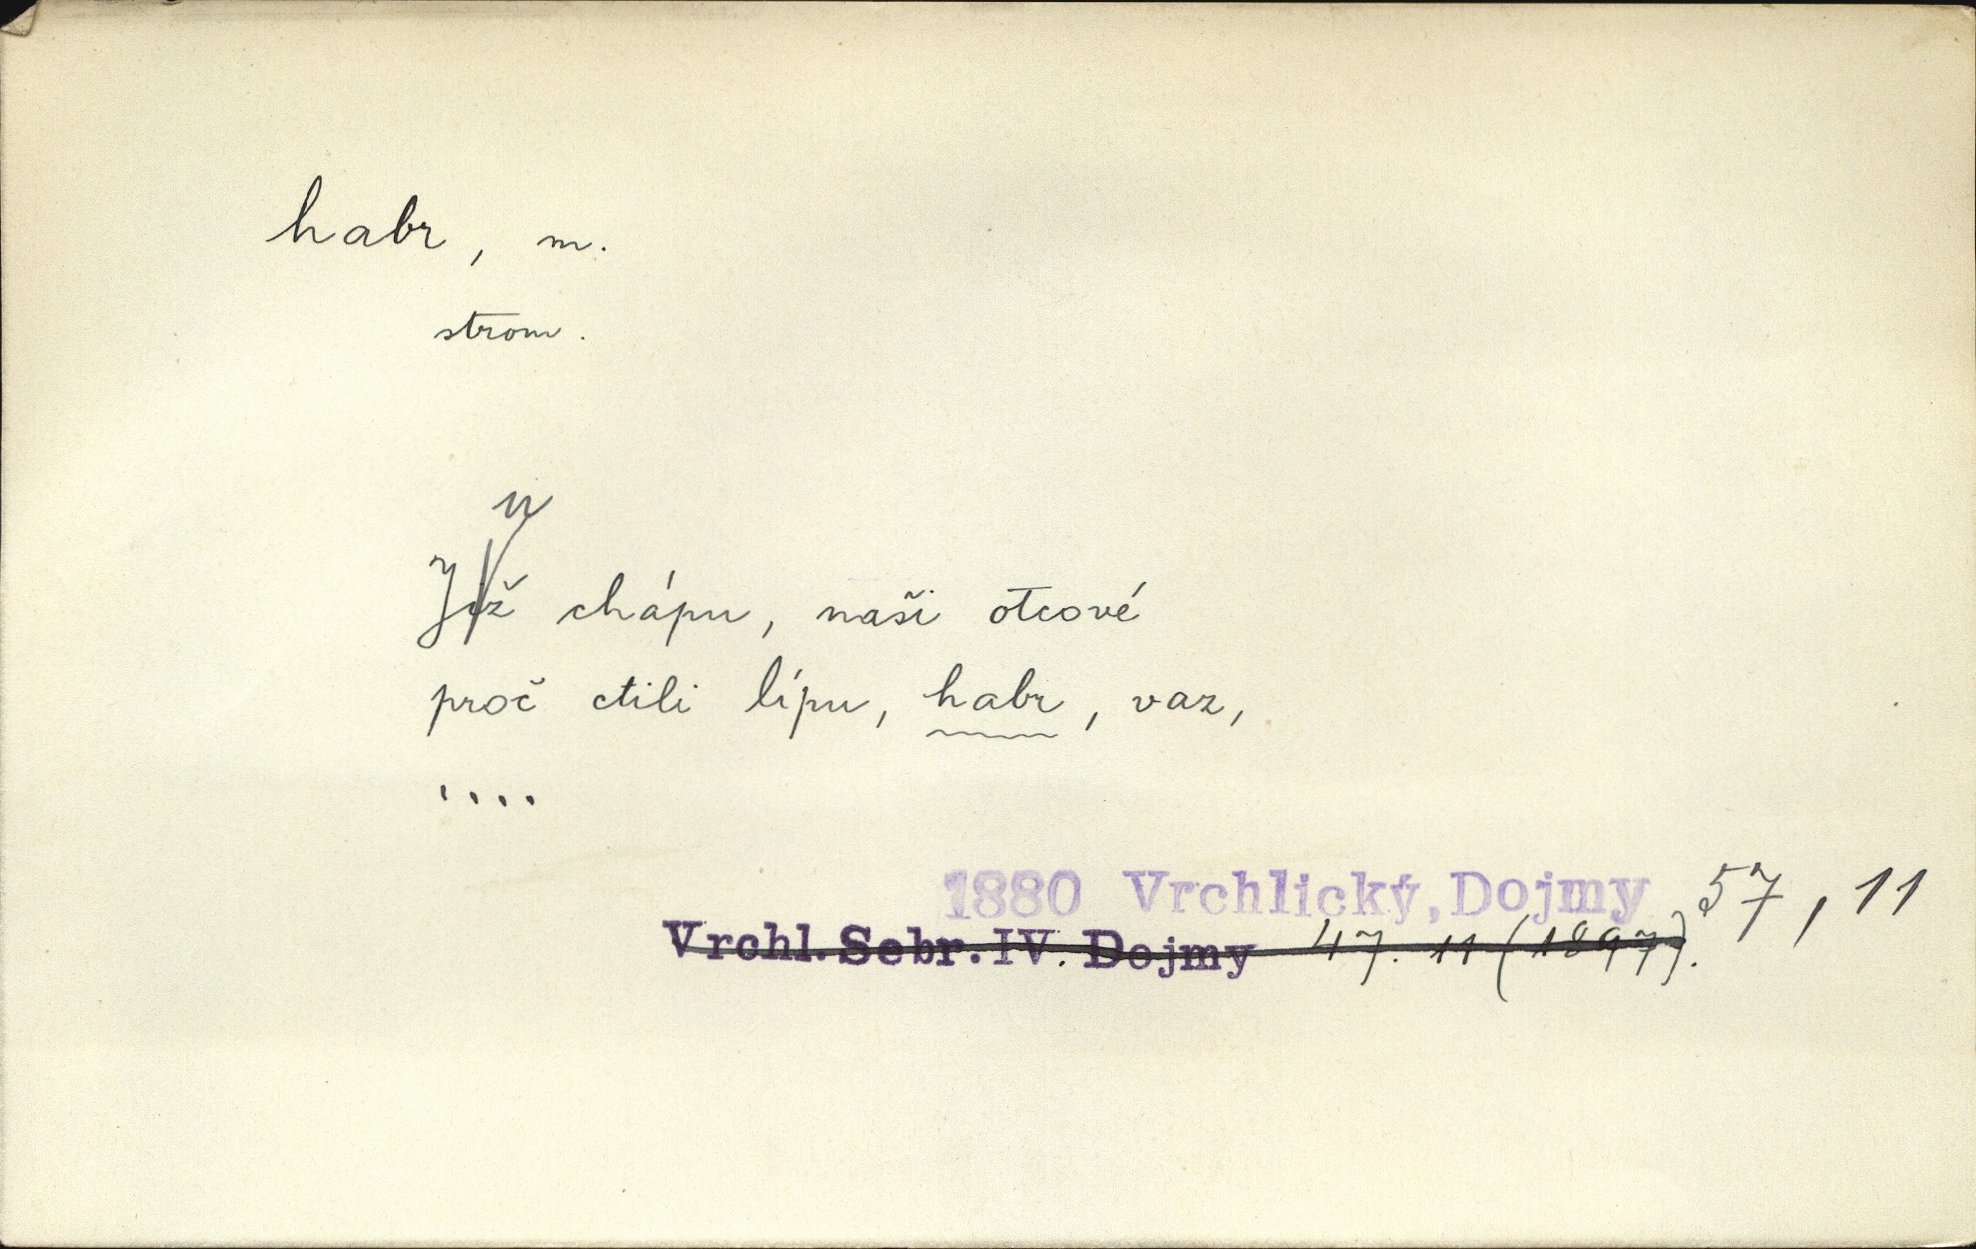 habr, m.
strom.
u
Již chápu, naši otcové
proč ctili lípu, habr, vaz,
....
1880 Vrchlický, Dojmy 57, 11
Vrchl. Sebr. IV. Dojmy 47. 11 (1897).